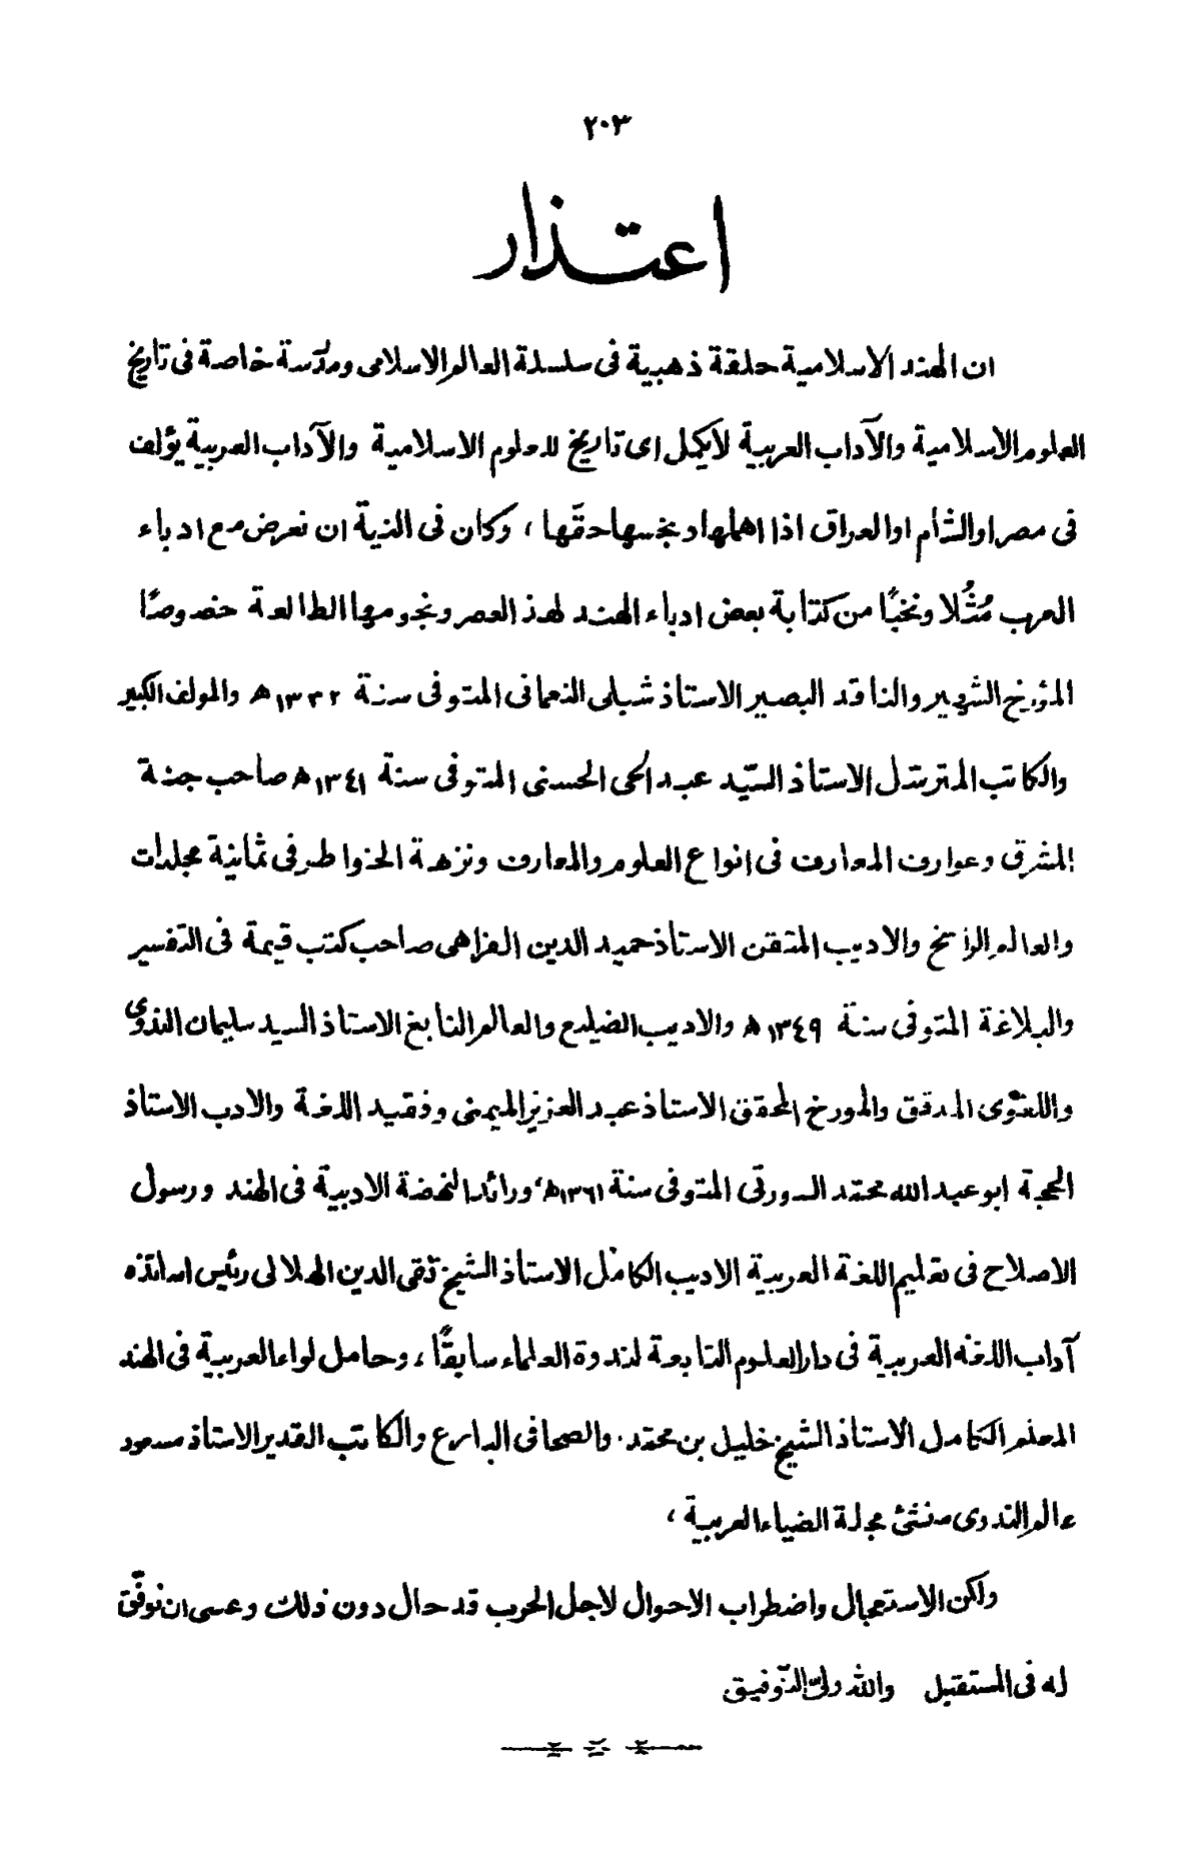 ٢٠٣
اعتذار
ان الهند الاسلامية حلقة ذهبية فى سلسلة العالم الاسلامى ومدرسة خاصة فى تاريخ
العلوم الاسلامية والآداب العربية لا يكمل اى تاريخ للعلوم الاسلامية والآداب العربية يؤلف
فى مصر او الشام او العراق اذا اهملها و بخسها حقّها ، وكان فى النية ان نعرض مع ادباء
العرب مُثُلا ونخبًا من كتابة بعض ادباء الهند لهذ العصر ونجومها الطالعة خصوصًا
المؤرخ الشهير والناقد البصير الاستاذ شبلى النعمانى المتوفى سنة ١٣٣٢ھ والمولف الكبير
والكاتب المترسّل الاستاذ السيّد عبد الحى الحسنى المتوفى سنة ١٣٤١ھ صاحب جنة
المشرق وعوارف المعارف فى انواع العلوم والمعارف ونزهة الخواطر فى ثمانية مجلدات
والعالم الراسخ والاديب المتقن الاستاذ حميد الدين الفراهى صاحب كتب قيمة فى التفسير
والبلاغة المتوفى سنة ١٣٤٩ھ والاديب الضليع والعالم النابغ الاستاذ السيد سليمان الندوى
واللغوى المدقق والمورخ المحقق الاستاذ عبد العزيز الميمنى وفقيد اللغة والادب الاستاذ
الحجة ابو عبد الله محمّد السورتى المتوفى سنة ١٣٦١ھ، ورائد النهضة الادبية فى الهند ورسول
الاصلاح فى تعليم اللغة العربية الاديب الكامل الاستاذ الشيخ تقى الدين الهلالى رئيس اساتذه
آداب اللغه العربية فى دار العلوم التابعة لندوة العلماء سابقًا ، وحامل لواء العربية فى الهند
المعلم الكامل الاستاذ الشيخ خليل بن محمّد. والصحافى البارع والكاتب القدير الاستاذ مسعود
عالم الندوى منشئ مجلة الضياء العربية ،
ولكن الاستعجال واضطراب الاحوال لاجل الحرب قد حال دون ذلك وعسى ان نوفّق
له فى المستقبل والله ولىّ التّوفيق